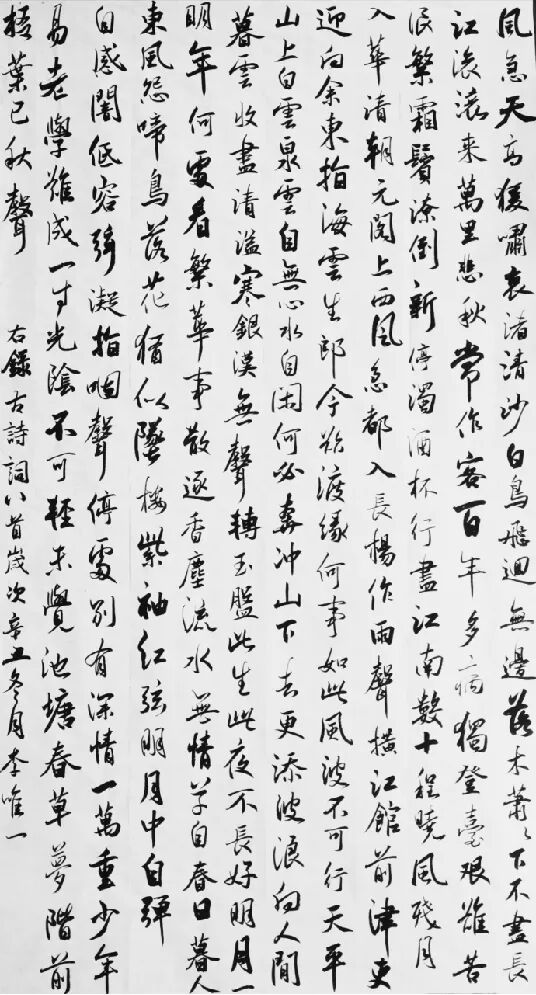 風急天高猨嘯哀渚清沙白鳥飛迴無邊落木蕭〻下不盡長
江滾滾来萬里悲秋常作客百年多病獨登臺艱難苦
恨繁霜鬢潦倒新停濁酒杯行盡江南數十程曉風殘月
入華清朝元閣上西風急都入長楊作雨聲橫江館前津吏
迎向余東指海雲生郎今欲渡緣何事如此風波不可行天平
山上白雲泉雲自無心水自閑何必奔冲山下去更添波浪向人間
暮雲收盡清溢寒銀漢無聲轉玉盤此生此夜不長好明月
明年何處看繁華事散逐香塵流水無情草自春日暮
東風怨啼鳥落花猶似墜樓紫袖紅弦明月中自彈
自感闇低容弦凝指咽聲停處別有深情一萬重少年
易老學難成一寸光陰不可輕未覺池塘春草夢階前
梧葉已秋聲 右錄古詩詞八首歲次辛丑冬月李唯一